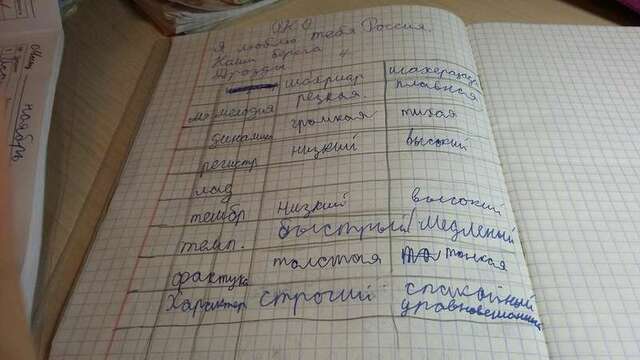 Я люблю тебя Россия.
Наши берега
шахриар шахеразада
мелодия рецкая плавная
динамика громкая тихая
регистр низкий высокий
лад
тембр низкий высокий
темп. быстрый медленый
фактура толстая тонкая
Характер строгий спакойный
уравновешанный
ноябрь